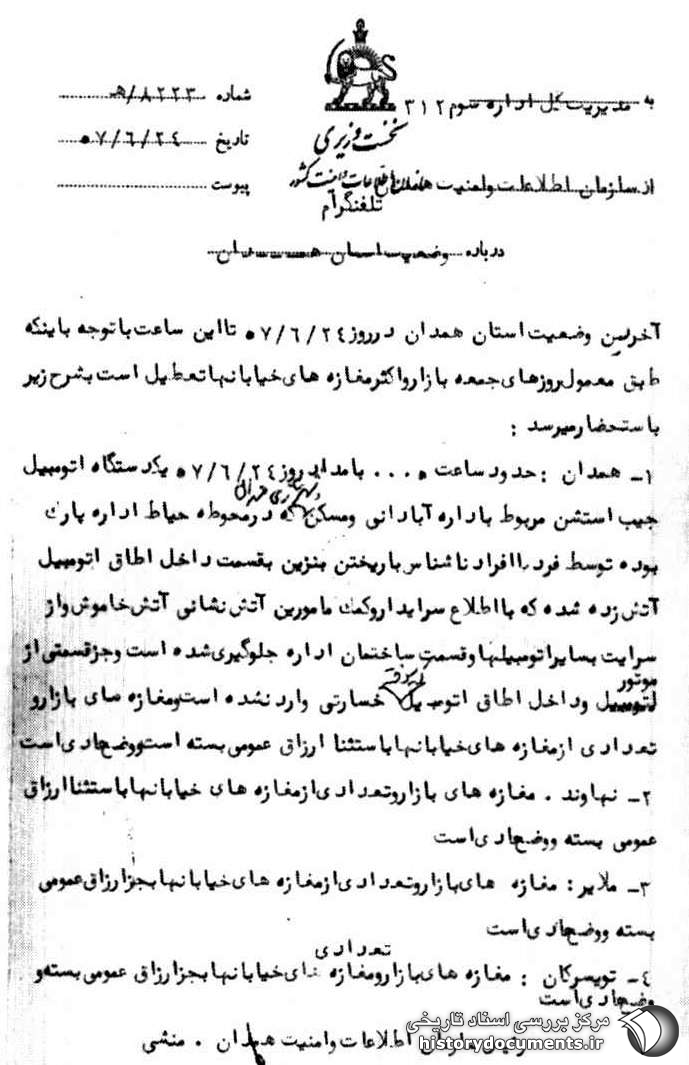 به مدیریت کل اداره سوم ۳۱۲
شماره ۸۲۲۳/ه
نخست وزیری
تاریخ ۵۷/۶/۲۴
از سازمان اطلاعات و امنیت همدان
سازمان اطلاعات و امنیت کشور
پیوست
تلفنگرام
درباره وضعیت استان همدان
آخرین وضعیت استان همدان در روز ۵۷/۶/۲۴ تا این ساعت با توجه باینکه
طبق معمول روزهای جمعه بازار و اکثر مغازه های خیابانها تعطیل است بشرح زیر
باستحضار میرسد :
۱- همدان : حدود ساعت بامداد روز ۵۷/۶/۲۴ یکدستگاه اتومبیل
جیپ استیشن مربوط باداره آبادانی ومسکن که در محوطه حیاط اداره پارک
بوده توسط فرد یا افراد ناشناس با ریختن بنزین بقسمت داخل اطاق اتومبیل
آتش زده شده که با اطلاع سرایدار وکمک مامورین آتش نشانی آتش خاموش واز
سرایت بسایر اتومبیلها وقسمت ساختمان اداره جلوگیری شده است وجز قسمتی از
موتور
اتومبیل وداخل اطاق اتومبیل خسارتی وارد نشده است ومغازه های بازار و
تعدادی از مغازه های خیابانها باستثنا ارزاق عمومی بسته است ووضع عادی است
۲- نهاوند . مغازه های بازار وتعدادی از مغازه های خیابانها باستثنا ارزاق
عمومی بسته ووضع عادی است
۳- ملایر : مغازه های بازار وتعدادی از مغازه های خیابانها بجز ارزاق عمومی
بسته ووضع عادی است
تعدادی
۴- تویسرکان : مغازه های بازار ومغازه های خیابانها بجز ارزاق عمومی بسته و
وضع عادی است
سازمان اطلاعات وامنیت همدان . منشی
مرکز بررسی اسناد تاریخی
historydocuments.ir